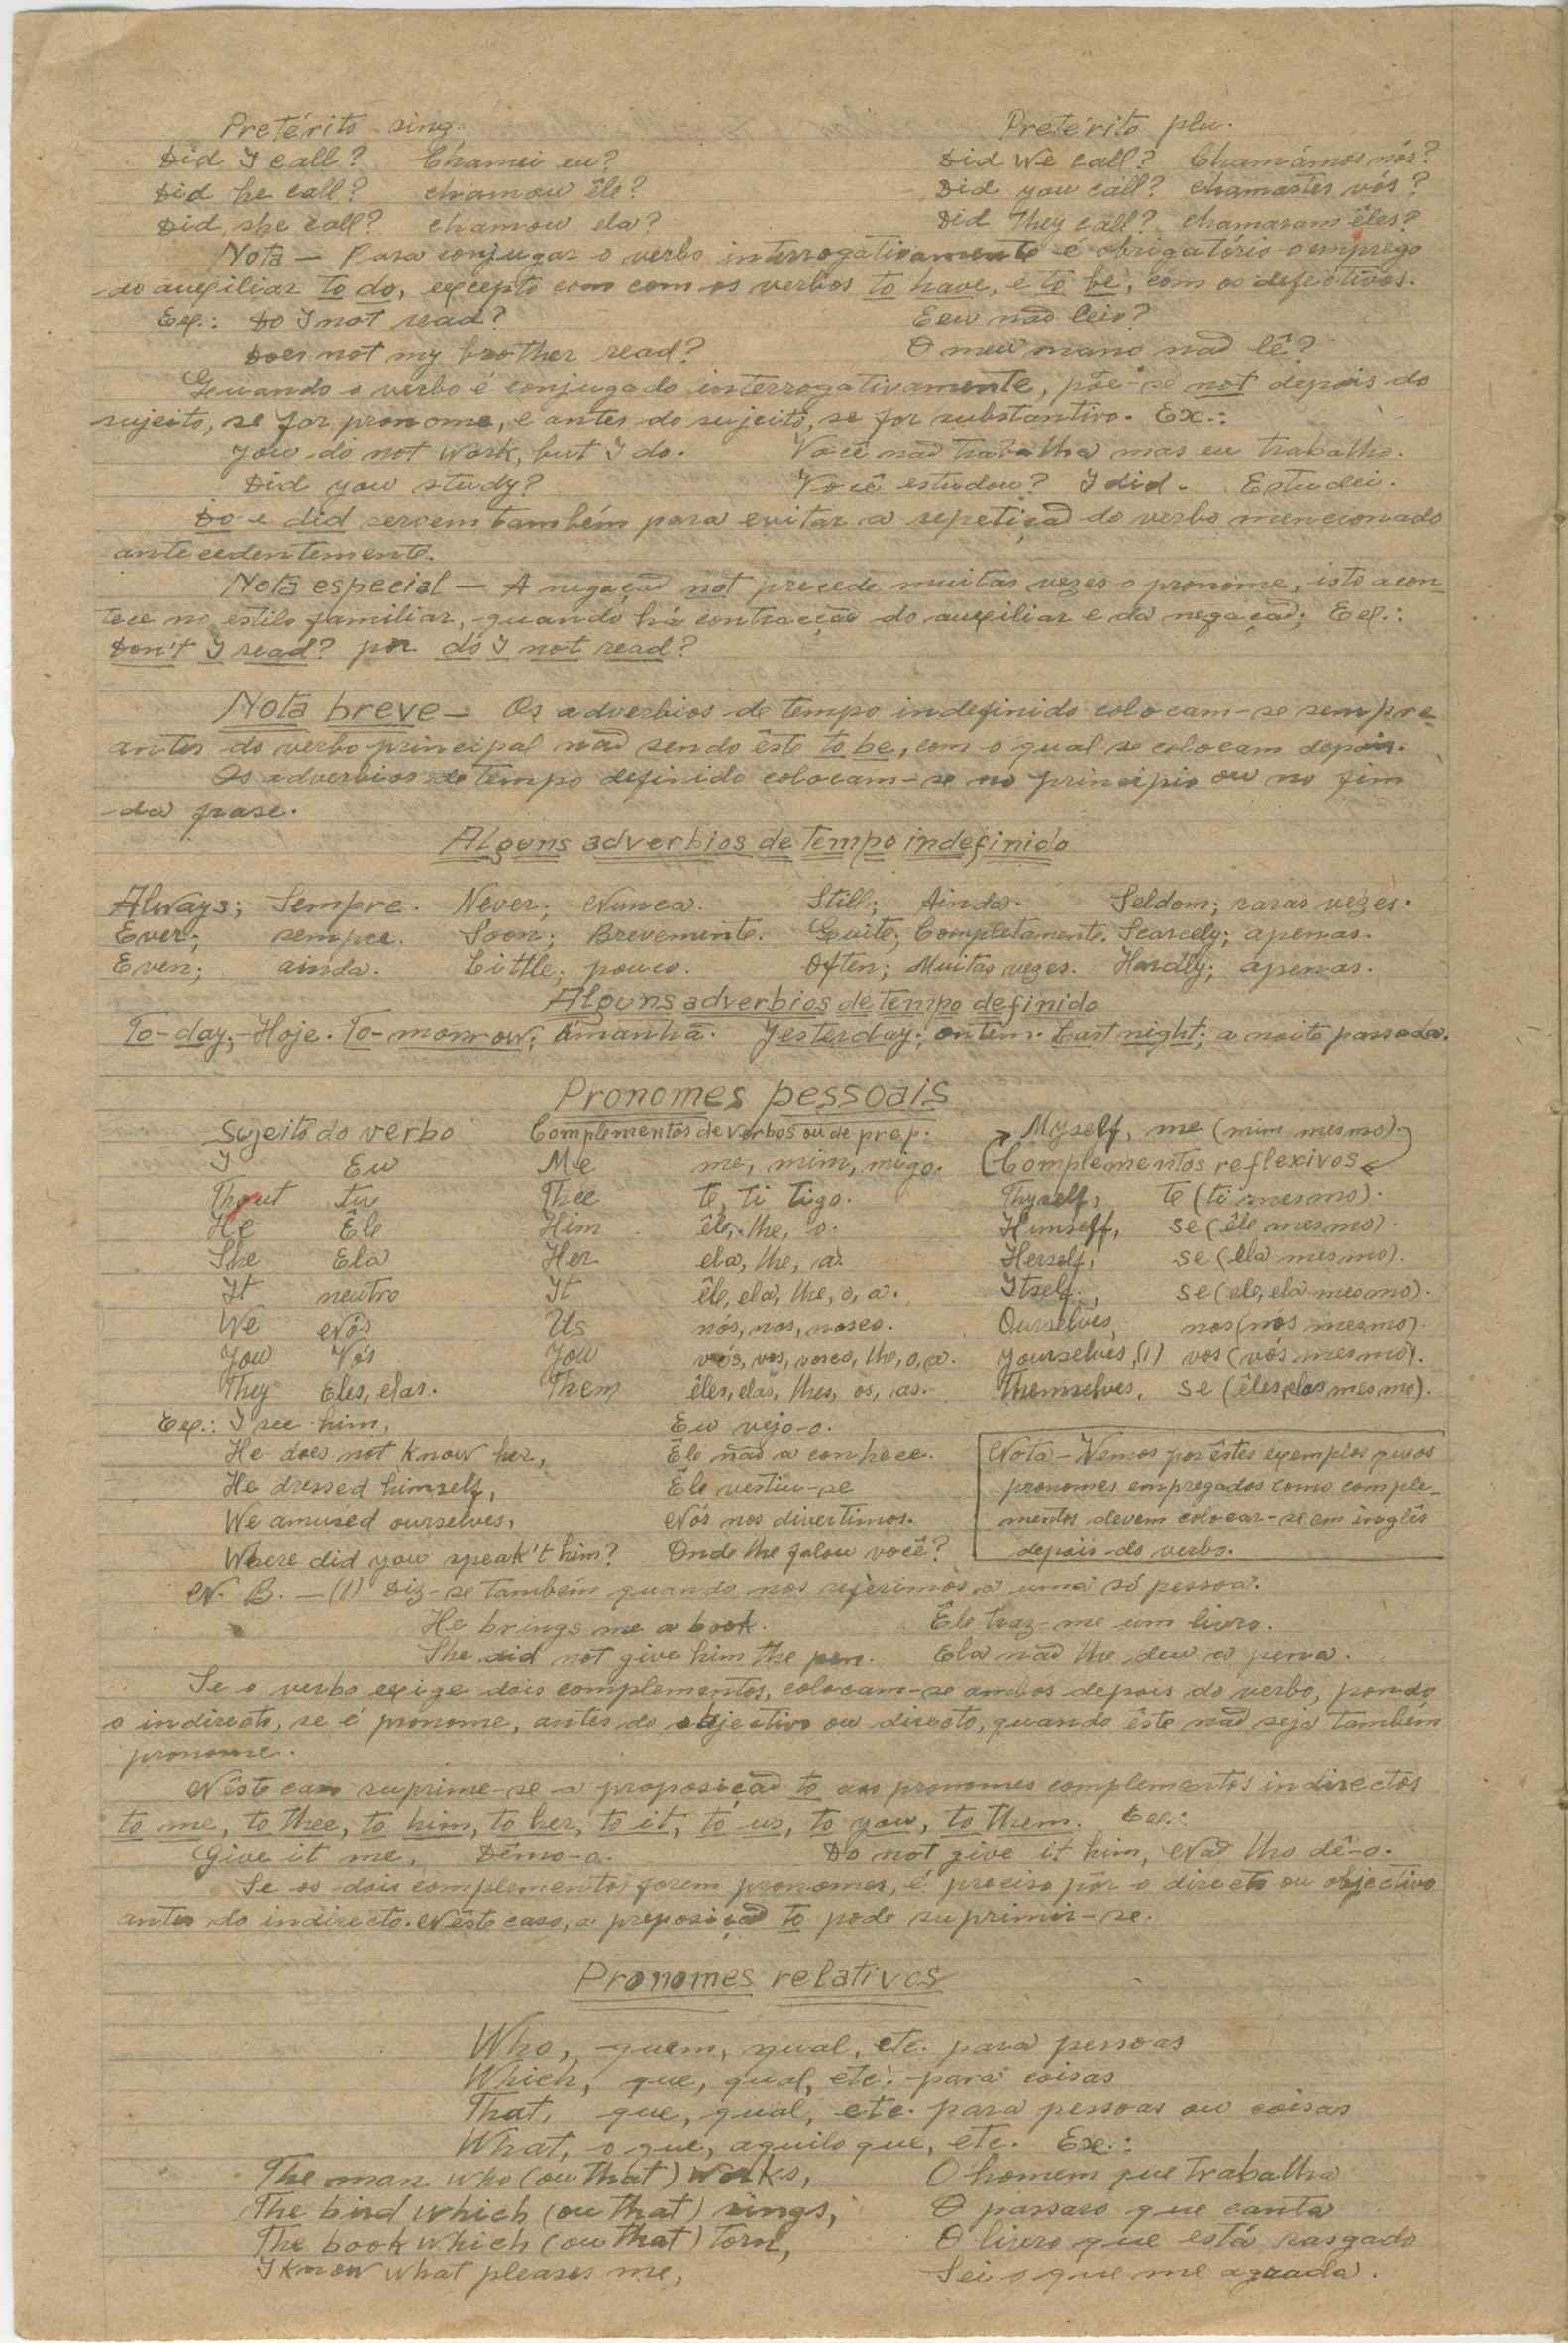 Pretérito sing. Pretérito plu.
Did I call? Chamei eu? Did We call? Chamámos nós?
Did he call? chamou êle? Did you call? chamastes vós?
Did she call? chamou ela? Did They call? chamaram êles?
Nota — Para conjugar o verbo interrogativamente é obrigatório o emprego
do auxiliar to do, excepto com com os verbos to have, e to be, com os defectivos.
Ex.: Do I not read? Eeu não leio?
Does not my brother read? O meu mano não lê?
Quando o verbo é conjugado interrogativamente, põe-se not depois do
sujeito, se for pronome, e antes do sujeito, se for substantivo. Ex.:
You do not work, but I do. Você não trabalha mas eu trabalho.
Did you study? Você estudou? I did. Estudei.
Do e did servem também para evitar a repetição do verbo mencionado
antecedentemente.
Nota especial — A negação not precede muitas vezes o pronome, isto acon-
tece no estilo familiar, quando há contracção do auxiliar e da negação; Ex.:
Don't I read? por do I not read?
Nota breve — Os adverbios de tempo indefinido colocam-se sempre
antes do verbo principal não sendo êste to be, com o qual se colocam depois.
Os adverbios de tempo definido colocam-se no principio ou no fim
da frase.
Alguns adverbios de tempo indefinido
Always; Sempre. Never; Nunca. Still; Ainda. Seldom; raras vezes.
Ever; sempre. Soon; Brevemente. Quite; Completamente. Scarcely; apenas.
Even; ainda. Little; pouco. Often; Muitas vezes. Hardly; apenas.
Alguns adverbios de tempo definido
To-day; Hoje. To-morrow; Amanhã. Yesterday; ontem. Last night; a noite passada.
Pronomes pessoais
Sujeito do verbo Complementos de verbos ou de prep. Myself, me (mim mesmo).
I Eu Me me, mim, migo. (Complementos reflexivos
Thout tu Thee te, ti tigo. Thyself, te (ti mesmo).
He Êle Him êle, lhe, o. Himself, se (êle mesmo).
She Ela Her ela, lhe, a. Herself, se (ela mesmo).
It neutro It êle, ela, lhe, o, a. Itself, se (ele, ela mesmo).
We Nós Us nós, nos, nosco. Ourselves, nos (nós mesmo).
You Vós You vós, vos, vosco, lhe, o, a. Yourselves, (1) vos (vós mesmo).
They Eles, elas. Them êles, elas, lhes, os, as. Themselves, se (êles, elas mesmo).
Ex.: I see him, Eu vejo-o.
He does not know her, Êle não a conhece.
He dressed himself, Êle vestiu-se
We amused ourselves, Nós nos divertimos.
Where did you speak't him? Onde lhe falou você?
Nota — Vemos por êstes exemplos que os
pronomes empregados como comple-
mentos devem colocar-se em inglês
depois do verbo.
N. B. — (1) Diz-se também quando nos referimos a uma só pessoa.
He brings me a book. Êle traz-me um livro.
She did not give him the pen. Ela não lhe deu a pena.
Se o verbo exige dois complementos, colocam-se ambos depois do verbo, pondo
o indirecto, se é pronome, antes do objectivo ou directo, quando êste não seja também
pronome.
Nêste caso suprime-se a proposição to aos pronomes complementos indirectos
to me, to thee, to him, to her, to it, to us, to you, to them. Ex.:
Give it me, Dêmo-o. Do not give it him, Não lho dê-o.
Se os dois complementos forem pronomes, é preciso pôr o directo ou objectivo
antes do indirecto. Nêste caso, a preposição to pode suprimir-se.
Pronomes relativos
Who, quem, qual, etc. para pessoas
Which, que, qual, etc. para coisas
That, que, qual, etc. para pessoas ou coisas
What, o que, aquilo que, etc. Ex.:
The man who (ou that) works, O homem que trabalha
The bird which (ou that) sings, O passaro que canta
The book which (ou that) torn, O livro que está rasgado
I know what pleases me, Sei o que me agrada.